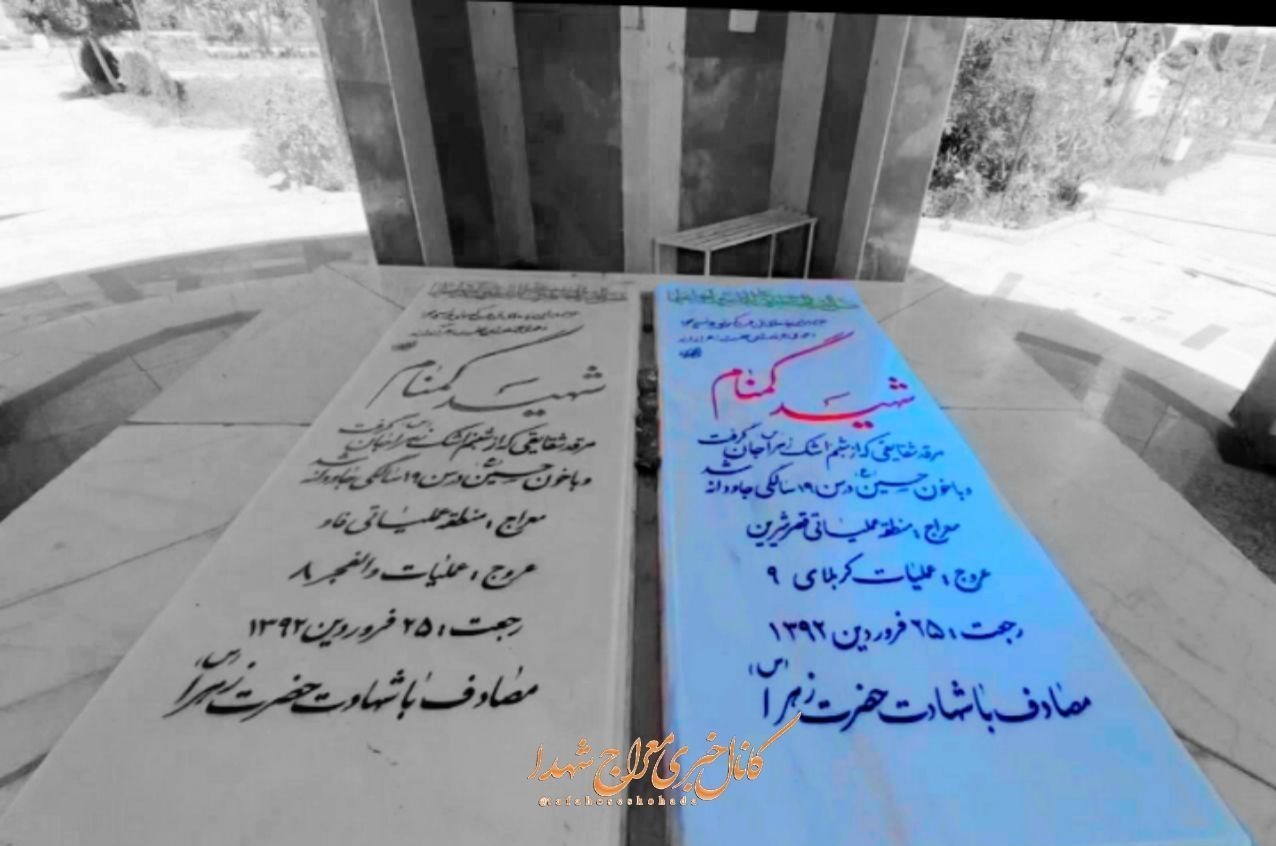 شهید گمنام
مرقد شقایقی که از شبنم اشک زهرا (س) جان گرفت
و با خون حسین (ع) در سن ۱۹ سالگی جاودانه شد
معراج : منطقه عملیاتی قصرشیرین
عروج : عملیات کربلای ۹
رجعت : ۲۵ فروردین ۱۳۹۲
مصادف با شهادت حضرت زهرا (س)
شهید گمنام
مرقد شقایقی که از شبنم اشک زهرا (س) جان گرفت
و با خون حسین (ع) در سن ۱۹ سالگی جاودانه شد
معراج : منطقه عملیاتی فاو
عروج : عملیات والفجر ۸
رجعت : ۲۵ فروردین ۱۳۹۲
مصادف با شهادت حضرت زهرا (س)
کانال خبری معراج شهدا